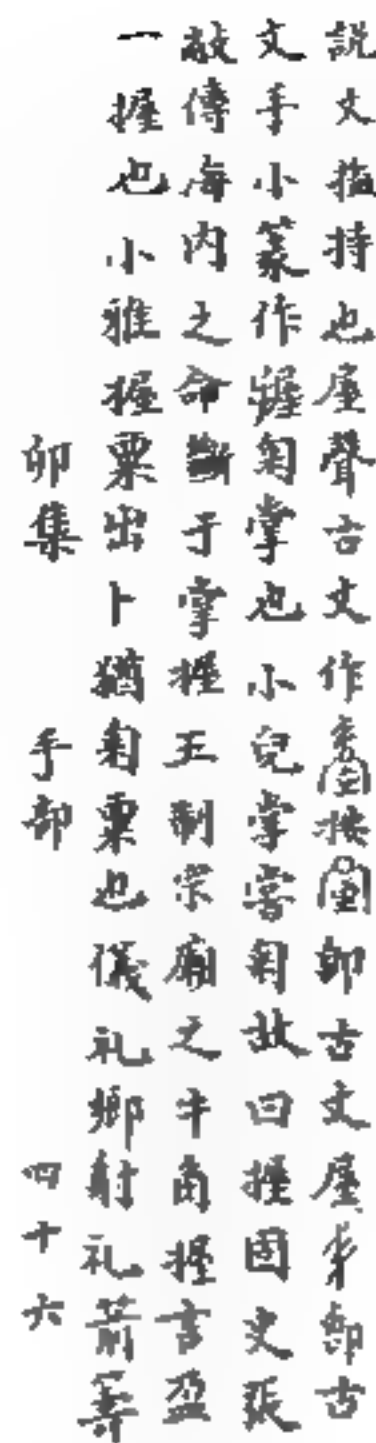 説文搤持也屋聲古文作按即古文屋即古
文手小篆作握匊掌也小兒掌嘗匊故曰握固史張
敖傳海内之命斷于掌握王制宗廟之牛角握言盈
一握也小雅握粟出卜猶匊粟也儀礼鄉射礼箭籌
卯集 手部 四十六